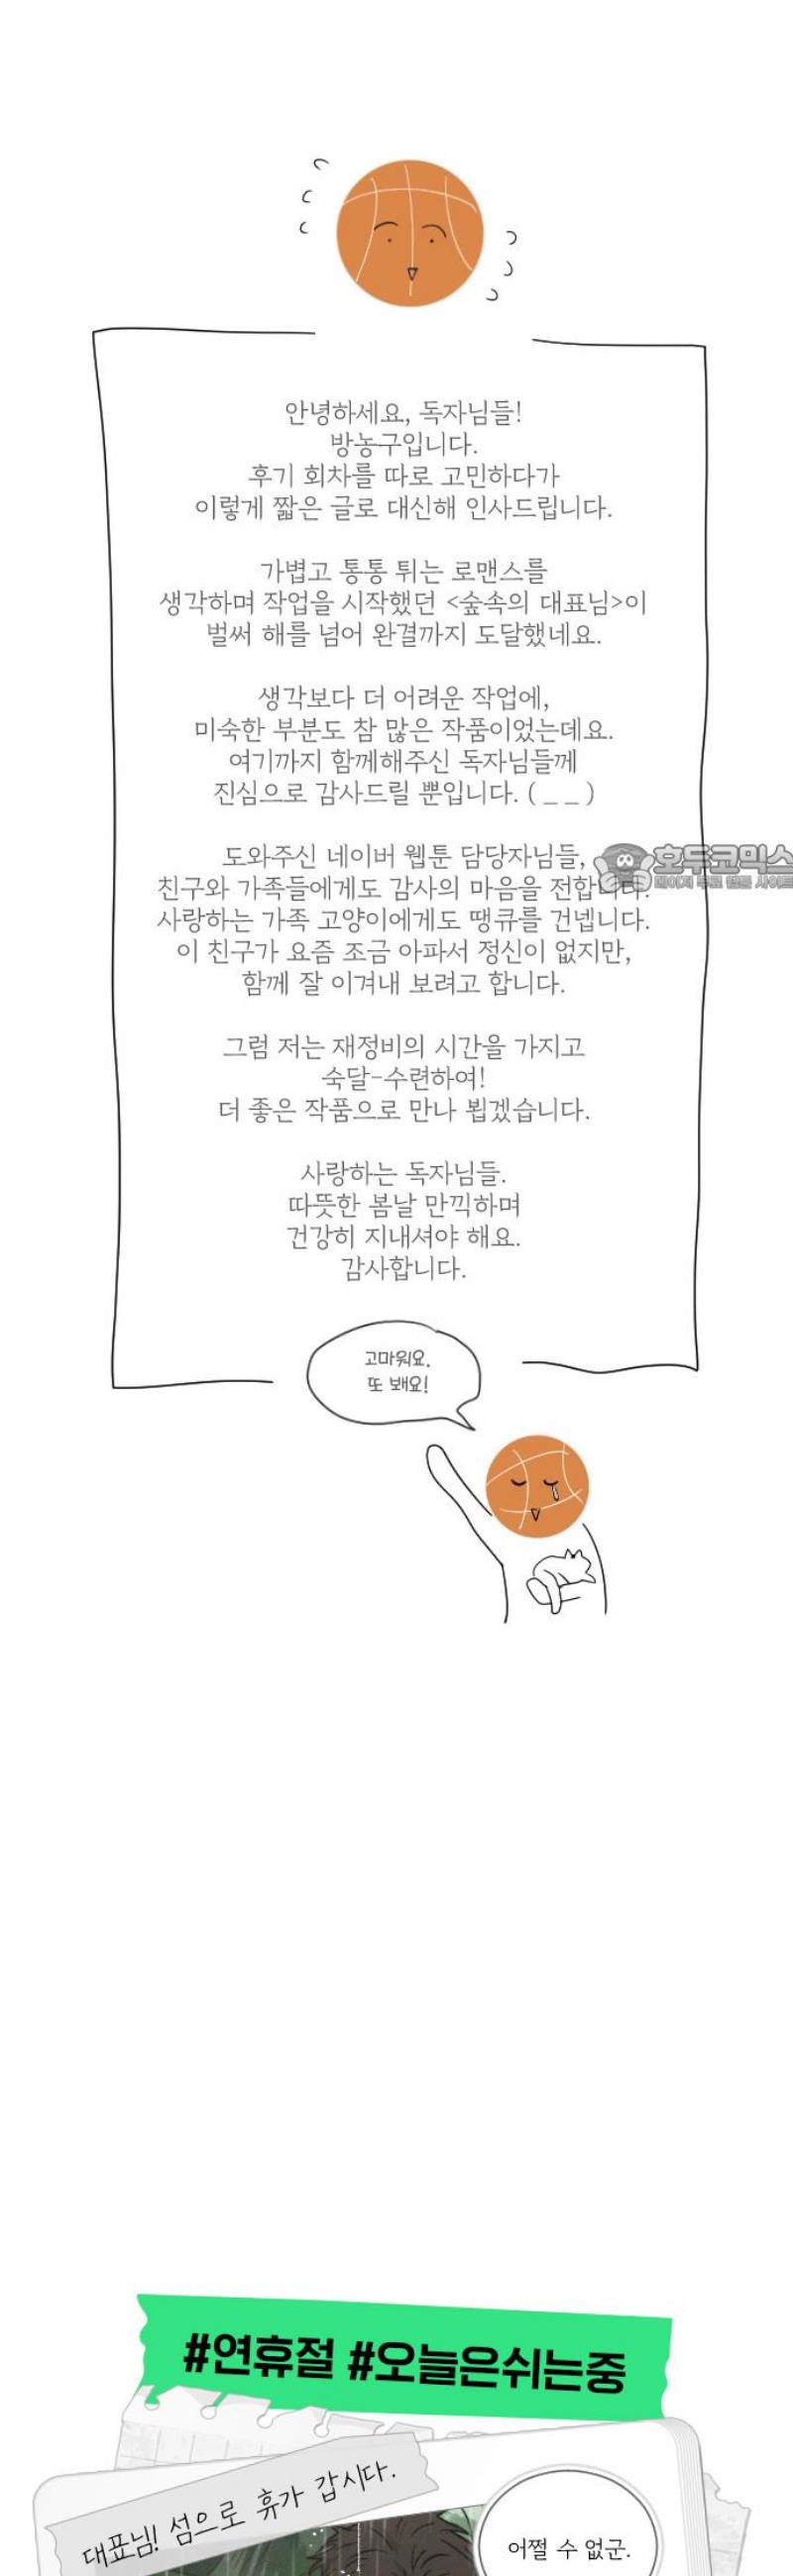 안녕하세요, 독자님들!
방농구입니다.
후기 회차를 따로 고민하다가
이렇게 짧은 글로 대신해 인사드립니다.
가볍고 통통 튀는 로맨스를
생각하며 작업을 시작했던 <숲속의 대표님>이
벌써 해를 넘어 완결까지 도달했네요.
생각보다 더 어려운 작업에,
미숙한 부분도 참 많은 작품이었는데요.
여기까지 함께해주신 독자님들께
진심으로 감사드릴 뿐입니다. ( _ _ )
도와주신 네이버 웹툰 담당자님들,
호두코믹스
페이지 무료 웹툰 사이트
친구와 가족들에게도 감사의 마음을 전합니다.
사랑하는 가족 고양이에게도 땡큐를 건넵니다.
이 친구가 요즘 조금 아파서 정신이 없지만,
함께 잘 이겨내 보려고 합니다.
그럼 저는 재정비의 시간을 가지고
숙달-수련하여!
더 좋은 작품으로 만나 뵙겠습니다.
사랑하는 독자님들.
따뜻한 봄날 만끽하며
건강히 지내셔야 해요.
감사합니다.
고마워요.
또 봬요!
#연휴절 #오늘은쉬는중
대표님! 섬으로 휴가 갑시다.
어쩔 수 없군.